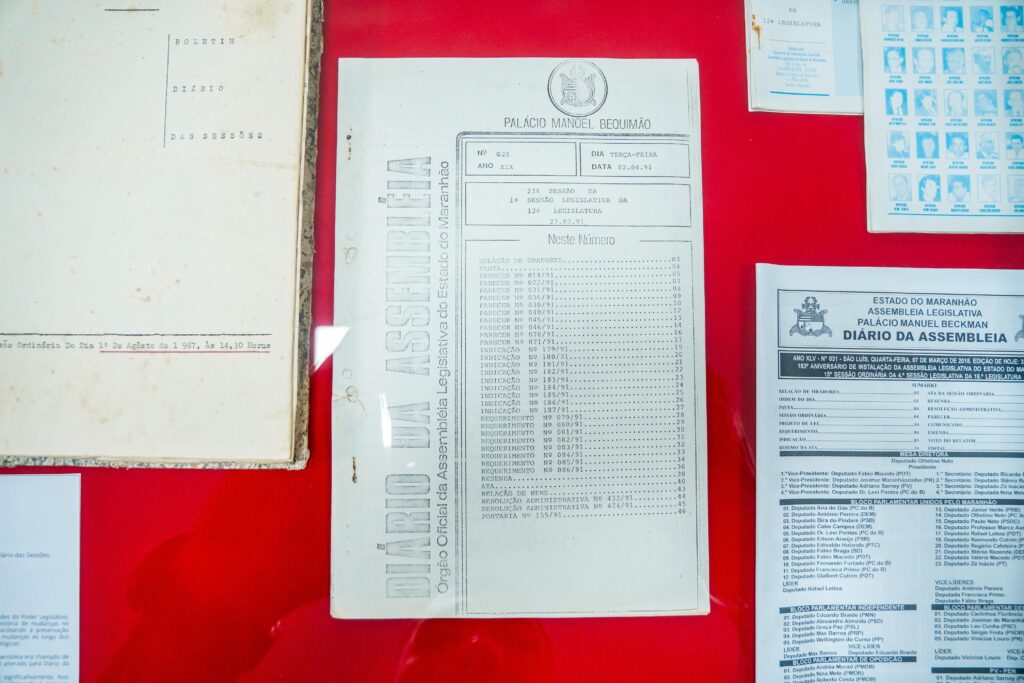 BOLETIM
DIÁRIO
DAS SESSÕES
Ordinário Do Dia 1ª De Agôsto de 1 967, Às 14,30 Horas
iário das Sessões.
do Poder Legislativo,
de mudanças no
a preservação
mudanças ao longo dos
era chamado de
alterado para Diário da
significativamente. Nos
DIÁRIO DA ASSEMBLÉIA
Orgão Oficial da Assembléia Legislativa do Estado do Maranhão
PALÁCIO MANOEL BEQUIMÃO
Nº 025
ANO XIX
DIA TERÇA-FEIRA
DATA 02.04.91
23ª SESSÃO DA
1ª SESSÃO LEGISLATIVA DA
12ª LEGISLATURA
27.03.91
Neste Número
RELAÇÃO DE ORADORES 03
PAUTA 04
PARECER Nº 014/91 05
PARECER Nº 022/91 07
PARECER Nº 031/91 08
PARECER Nº 036/91 09
PARECER Nº 038/91 10
PARECER Nº 040/91 12
PARECER Nº 045/91 13
PARECER Nº 046/91 14
PARECER Nº 070/91 16
PARECER Nº 071/91 17
INDICAÇÃO Nº 179/91 19
INDICAÇÃO Nº 180/91 20
INDICAÇÃO Nº 181/91 21
INDICAÇÃO Nº 182/91 22
INDICAÇÃO Nº 183/91 23
INDICAÇÃO Nº 184/91 24
INDICAÇÃO Nº 185/91 25
INDICAÇÃO Nº 186/91 26
INDICAÇÃO Nº 187/91 27
REQUERIMENTO Nº 079/91 28
REQUERIMENTO Nº 080/91 29
REQUERIMENTO Nº 081/91 30
REQUERIMENTO Nº 082/91 31
REQUERIMENTO Nº 083/91 33
REQUERIMENTO Nº 084/91 34
REQUERIMENTO Nº 085/91 35
REQUERIMENTO Nº 086/91 36
RESENHA 38
ATA 40
RELAÇÃO DE BENS 43
RESOLUÇÃO ADMINISTRATIVA Nº 432/91 44
RESOLUÇÃO ADMINISTRATIVA Nº 474/91 45
PORTARIA Nº 155/91 46
DA
12ª LEGISLATURA
ESTADO DO MARANHÃO
ASSEMBLEIA LEGISLATIVA
PALÁCIO MANUEL BECKMAN
DIÁRIO DA ASSEMBLEIA
ANO XLV - Nº 031 - SÃO LUÍS, QUARTA-FEIRA, 07 DE MARÇO DE 2018. EDIÇÃO DE HOJE: 3
183º ANIVERSÁRIO DE INSTALAÇÃO DA ASSEMBLEIA LEGISLATIVA DO ESTADO DO MA
15ª SESSÃO ORDINÁRIA DA 4.ª SESSÃO LEGISLATIVA DA 18.ª LEGISLATURA
SUMÁRIO
RELAÇÃO DE ORADORES
ORDEM DO DIA
PAUTA
SESSÃO ORDINÁRIA
PROJETO DE LEI
REQUERIMENTO
INDICAÇÃO
RESUMO DA ATA
ATA DA SESSÃO ORDINÁRIA
RESENHA
RESOLUÇÃO ADMINISTRATIVA
PARECER
COMUNICADO
EMENDA
VOTO DO RELATOR
EDITAL
MESA DIRETORA
Deputado Othelino Neto
Presidente
1.º Vice-Presidente: Deputado Fábio Macedo (PDT)
2.º Vice-Presidente: Deputado Josimar Maranhãozinho (PR)
3.º Vice-Presidente: Deputado Adriano Sarney (PV)
4.º Vice-Presidente: Deputado Dr. Levi Pontes (PC do B)
1.º Secretário: Deputado Ricardo
2.º Secretário: Deputado Stênio
3.º Secretário: Deputado Zé Inácio
4.º Secretária: Deputada Nina
BLOCO PARLAMENTAR UNIDOS PELO MARANHÃO
01. Deputada Ana do Gás (PC do B)
02. Deputado Antônio Pereira (DEM)
03. Deputado Bira do Pindaré (PSB)
04. Deputado Cabo Campos (DEM)
05. Deputado Dr. Levi Pontes (PC do B)
06. Deputado Edson Araújo (PSB)
07. Deputado Edivaldo Holanda (PTC)
08. Deputado Fábio Braga (SD)
09. Deputado Fábio Macedo (PDT)
10. Deputado Fernando Furtado (PC do B)
11. Deputada Francisca Primo (PC do B)
12. Deputado Glalbert Cutrim (PDT)
13. Deputado Júnior Verde (PRB)
14. Deputado Othelino Neto (PC do
15. Deputado Paulo Neto (PSDC)
16. Deputado Professor Marco
17. Deputado Rafael Leitoa (PDT)
18. Deputado Raimundo Cutrim
20. Deputado Rogério Cafeteira
21. Deputado Stênio Rezende (DEM
22. Deputada Valéria Macedo (PDT
23. Deputado Zé Inácio (PT)
LÍDER
Deputado Rafael Leitoa
VICE-LÍDERES
Deputado Antônio Pereira
Deputada Francisca Primo
Deputado Fábio Braga
BLOCO PARLAMENTAR INDEPENDENTE
01. Deputado Eduardo Braide (PMN)
02. Deputado Alexandre Almeida (PSD)
03. Deputada Graça Paz (PSL)
04. Deputado Max Barros (PRP)
05. Deputado Wellington do Curso (PP)
LÍDER
Deputado Max Barros
VICE-LÍDER
Deputado Eduardo Braide
BLOCO PARLAMENTAR DE OPOSIÇÃO
01. Deputada Andréa Murad (PMDB)
02. Deputada Nina Melo (PMDB)
03. Deputado Roberto Costa (PMDB)
BLOCO PARLAMENTAR
01. Deputado Carlinhos Florêncio
02. Deputado Josimar de Maranhã
03. Deputado Léo Cunha (PSC)
04. Deputado Sérgio Frota (PSDB)
05. Deputado Vinicius Louro (PR)
LÍDER
Deputado Vinicius Louro
PV - PEN
01. Deputado Adriano Sarney (PV)